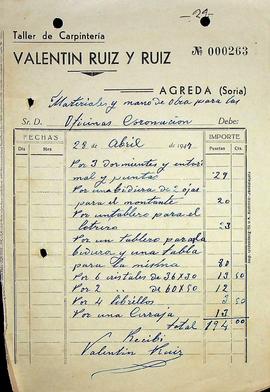 -29-
Taller de Carpintería
VALENTIN RUIZ Y RUIZ
Nº 000263
AGREDA (Soria)
Materiales y mano de obra para las
Sr. D. Oficinas Coronacion Debe:
FECHAS IMPORTE
Día Mes Pesetas Cts.
28 de Abril de 19
Por 3 dormientes y
y puntas 29
Por una de 2 ojas
para el montante 20
Por un tablero para el
letrero 23
Por un tablero para
y una tabla
para la misma 80
Por 6 cristales de 36 x 30 13 50
Por 2 " de 60 x 50 12
Por 4 50
Por una Cerraja 13
total 194 00
Recibi
Valentin Ruiz